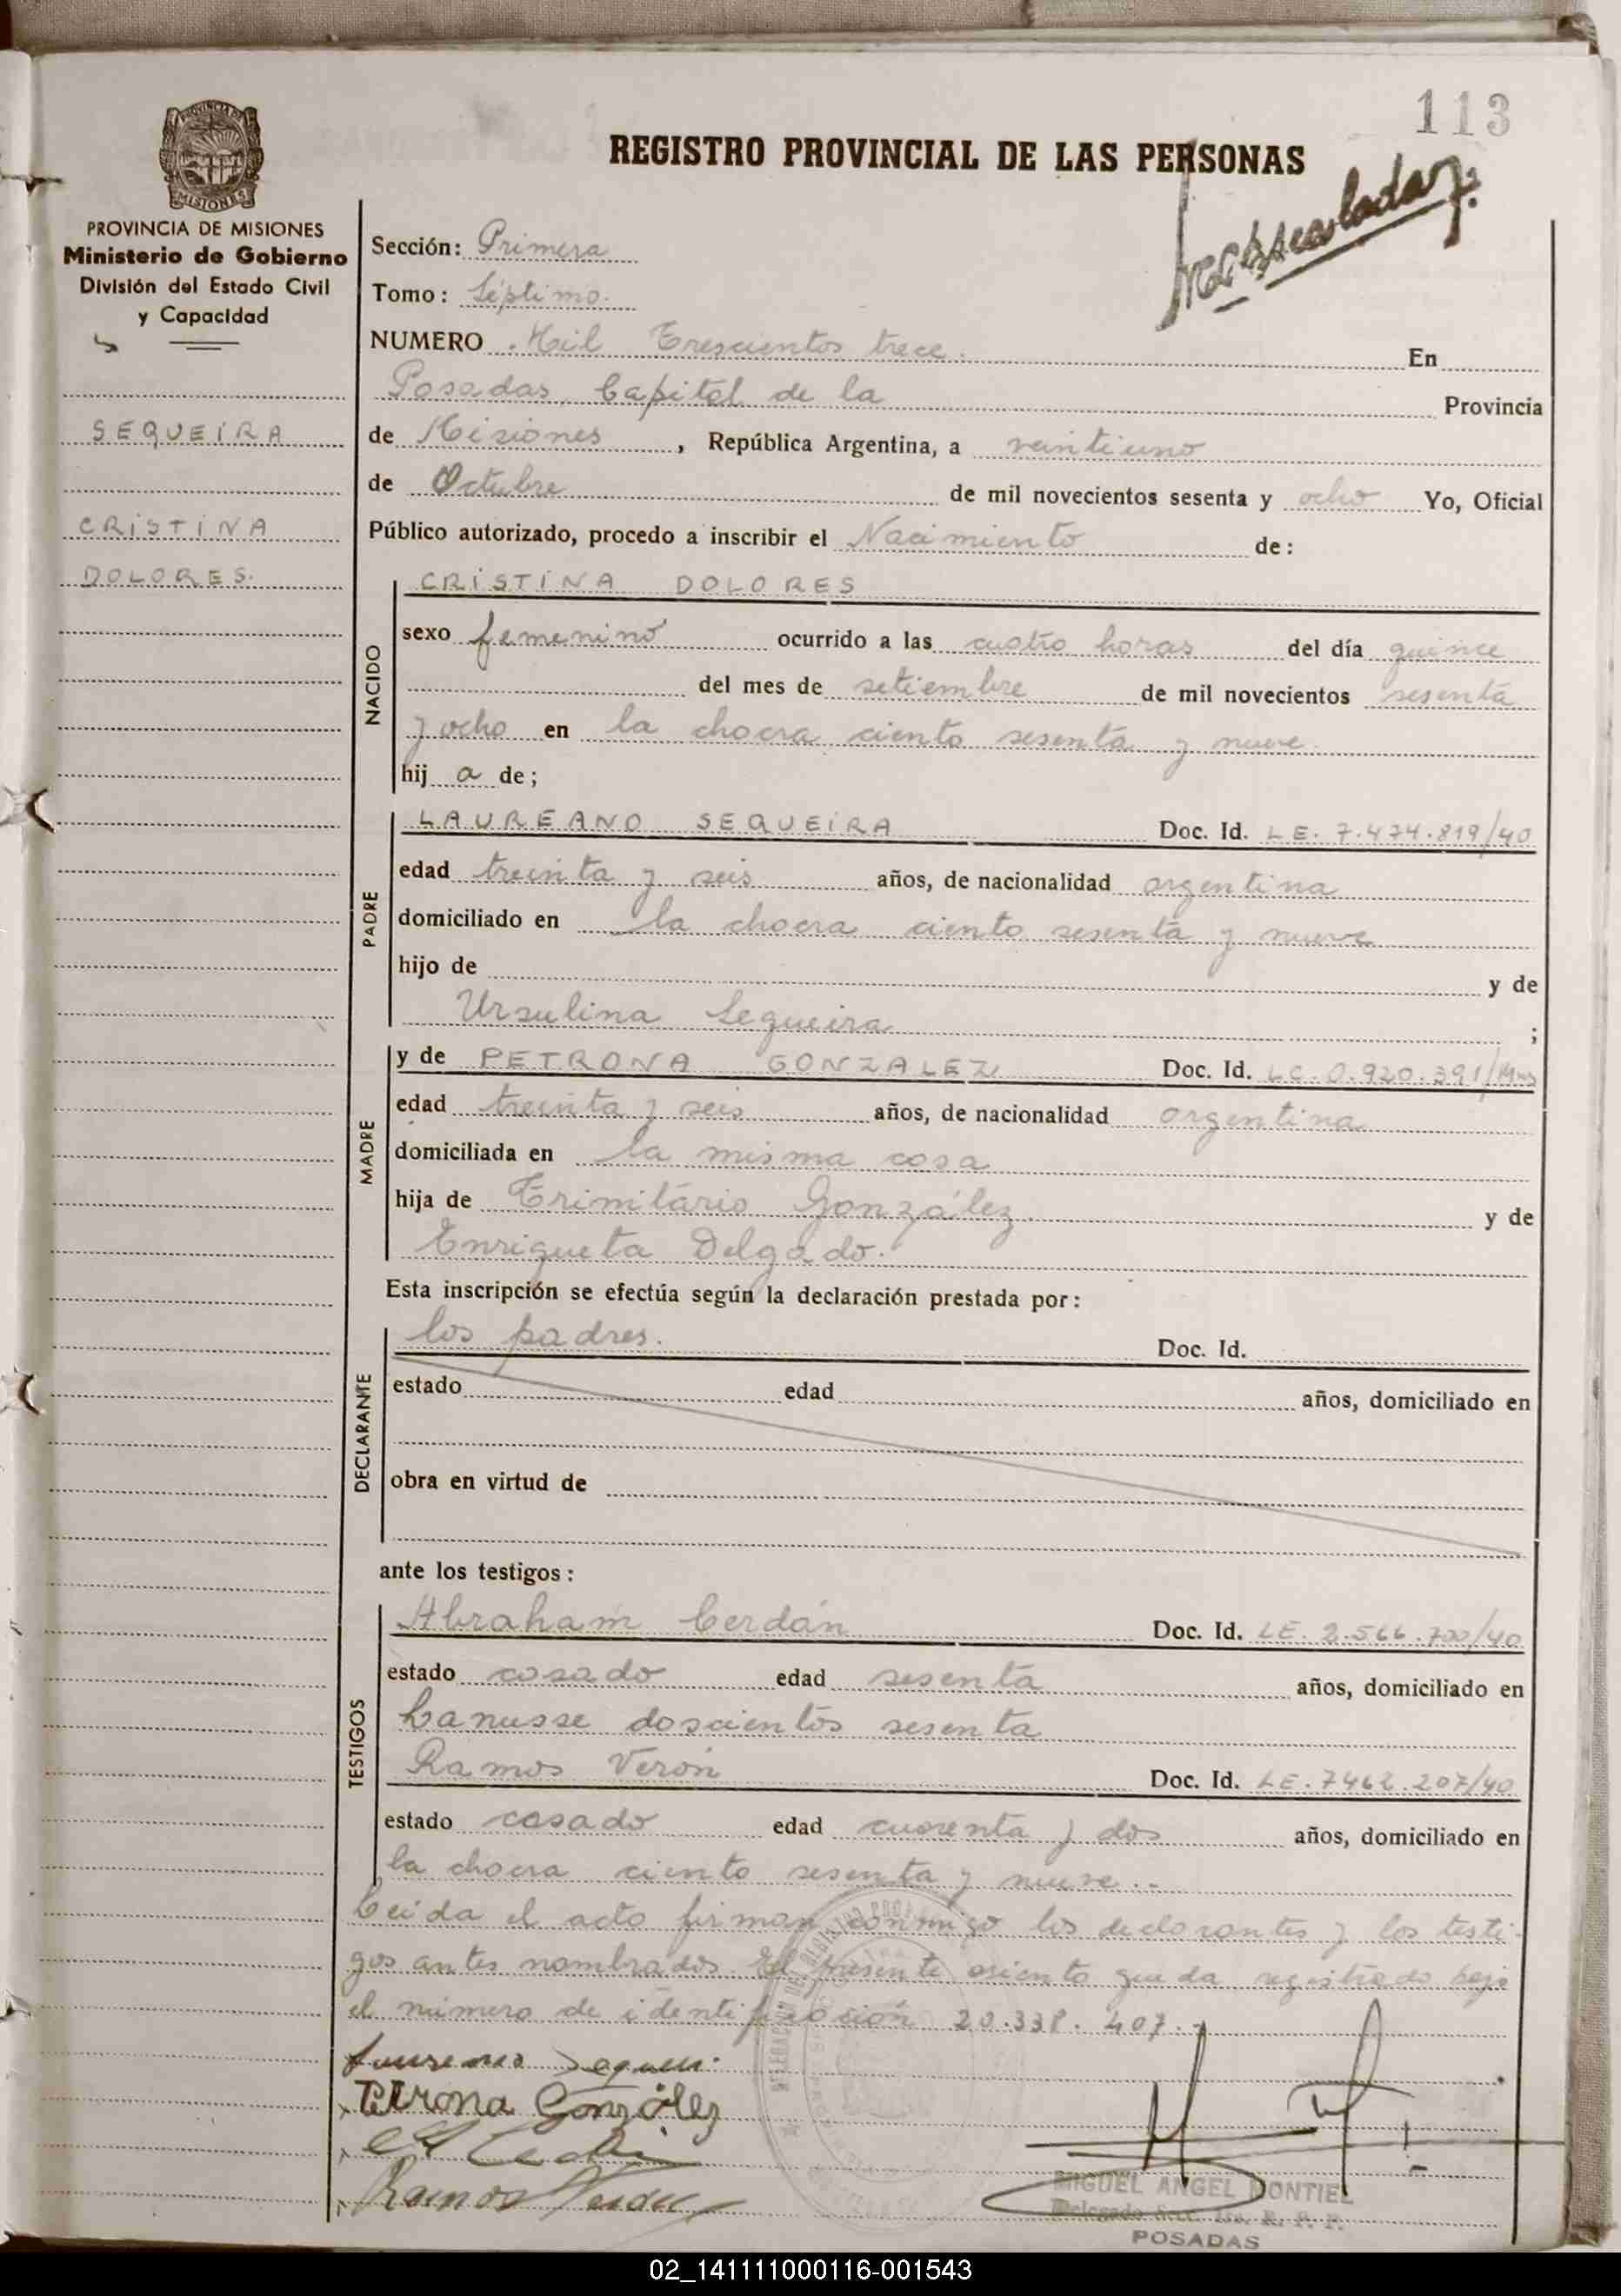 113
REGISTRO PROVINCIAL DE LAS PERSONAS
PROVINCIA DE MISIONES
Ministerio de Gobierno
División del Estado Civil
y Capacidad
SEQUEIRA
CRISTINA
DOLORES.
Sección: Primera
Tomo: Séptimo.
NUMERO Mil Trescientos trece. En
Posadas, Capital de la Provincia
de Misiones, República Argentina, a veintiuno
de Octubre de mil novecientos sesenta y ocho Yo, Oficial
Público autorizado, procedo a inscribir el Nacimiento de:
NACIDO
CRISTINA DOLORES
sexo femenino ocurrido a las cuatro horas del día quince
del mes de setiembre de mil novecientos sesenta
y ocho en la chacra ciento sesenta y nueve.
hij a de;
PADRE
LAUREANO SEQUEIRA Doc. Id. L E. 7.474.819/40
edad treinta y seis años, de nacionalidad argentina
domiciliado en la chacra ciento sesenta y nueve
hijo de y de
Ursulina Sequeira ;
MADRE
y de PETRONA GONZALEZ Doc. Id. L C. 0.920.391/
edad treinta y seis años, de nacionalidad argentina
domiciliada en la misma casa
hija de Trinitario González y de
Enriqueta Delgado.
Esta inscripción se efectúa según la declaración prestada por:
DECLARANTE
los padres. Doc. Id.
estado edad años, domiciliado en
obra en virtud de
ante los testigos:
TESTIGOS
Abraham Cerdán Doc. Id. LE. 2.566.700/40
estado casado edad sesenta años, domiciliado en
Lanusse doscientos sesenta
Ramos Verón Doc. Id. LE. 7462.207/40
estado casado edad cuarenta y dos años, domiciliado en
la chacra ciento sesenta y nueve..
Leída el acta firman conmigo los declarantes y los testi-
gos antes nombrados. El presente asiento queda registrado bajo
el número de identificación 20.338.407.-
Petrona González
Ramos Verón
MIGUEL ANGEL MONTIEL
Delegado Secc. 1ra. R. P. P.
POSADAS
02_141111000116-001543